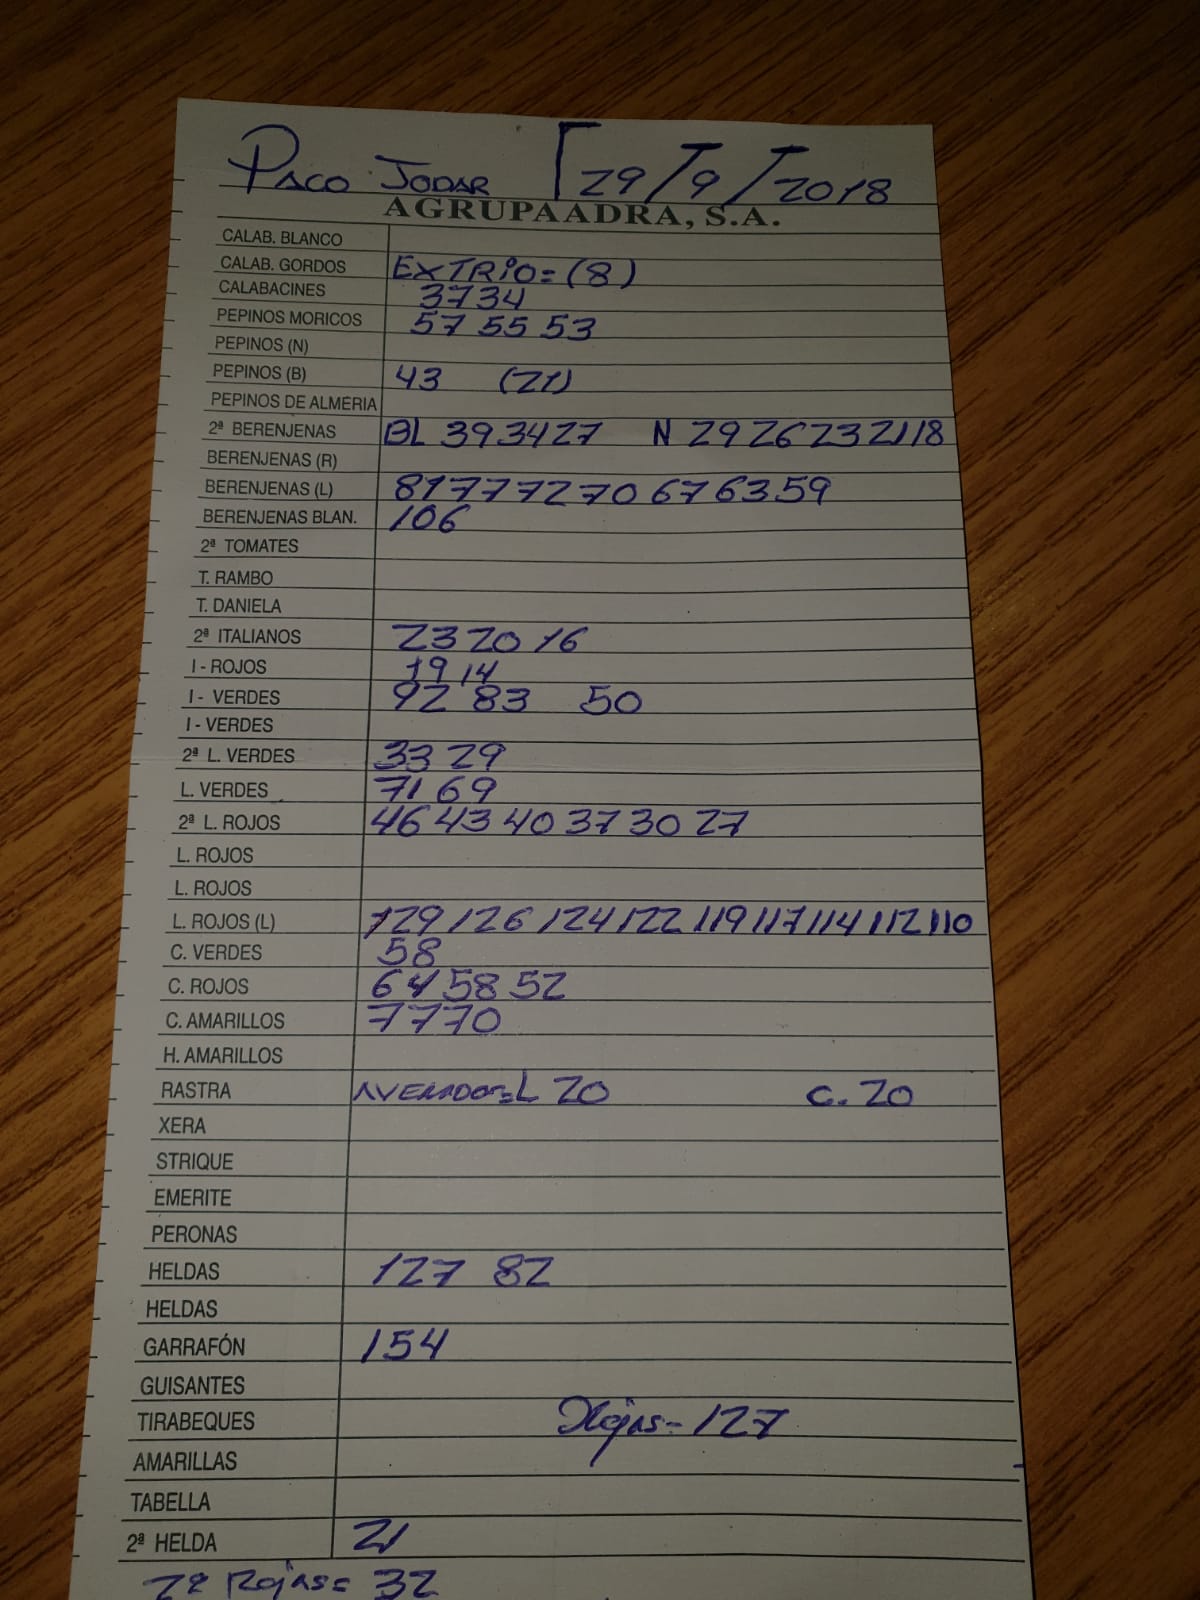 PACO JODAR 29/9/2018
AGRUPAADRA, S.A.
CALAB. BLANCO
CALAB. GORDOS EXTRIO=(8)
CALABACINES 37 34
PEPINOS MORICOS 57 55 53
PEPINOS (N)
PEPINOS (B) 43 (21)
PEPINOS DE ALMERIA
2ª BERENJENAS BL 39 34 27 N 29 26 23 21 18
BERENJENAS (R)
BERENJENAS (L) 81 77 72 70 67 63 59
BERENJENAS BLAN. 106
2ª TOMATES
T. RAMBO
T. DANIELA
2ª ITALIANOS 23 20 16
I - ROJOS 19 14
I - VERDES 92 83 50
I - VERDES
2ª L. VERDES 33 29
L. VERDES 71 69
2ª L. ROJOS 46 43 40 37 30 27
L. ROJOS
L. ROJOS
L. ROJOS (L) 129 126 124 122 119 117 114 112 110
C. VERDES 58
C. ROJOS 64 58 52
C. AMARILLOS 77 70
H. AMARILLOS
RASTRA L 20 C. 20
XERA
STRIQUE
EMERITE
PERONAS
HELDAS 127 82
HELDAS
GARRAFÓN 154
GUISANTES
TIRABEQUES Rojas= 127
AMARILLAS
TABELLA
2ª HELDA 21
2ª Rojas= 32